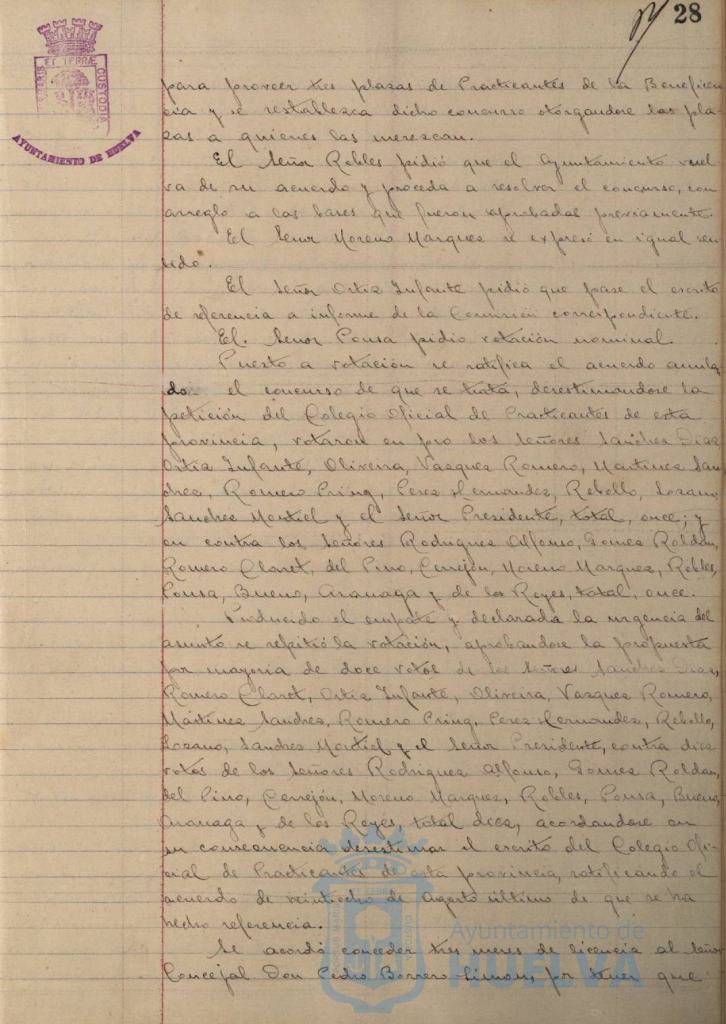 28
PORTUS MARIS ET TERRAE CUSTODIA
AYUNTAMIENTO DE HUELVA
para proveer tres plazas de Practicantes de la Beneficen
cia y se restablezca dicho concurso otorgandose las pla
zas a quienes las merezcan.
El Señor Robles pidió que el Ayuntamiento vuel
va de su acuerdo y proceda a resolver el concurso, con
arreglo a las bases que fueron aprobadas previamente.
El Señor Moreno Marquez se expresó en igual sen
tido.
El Señor Ortiz Infante pidió que pase el escrito
de referencia a informe de la Comisión correspondiente.
El Señor Ponsa pidio votación nominal.
Puesto a votación se ratifica el acuerdo anula
do el concurso de que se trata, desestimandose la
petición del Colegio Oficial de Practicantes de esta
provincia, votaron en pro los Señores Sanchez Diaz,
Ortiz Infante, Oliveira, Vazquez Romero, Martinez San
chez, Romero Pring, Perez Hernandez, Rebollo, Lozano,
Sanchez Montiel y el Señor Presidente, total, once; y
en contra los Señores Rodriguez Alfonso, Gomez Roldan,
Romero Claret, del Pino, Cerrejón, Moreno Marquez, Robles,
Ponsa, Bueno, Aranaga y de los Reyes, total, once.
Producido el empate y declarada la urgencia del
asunto se repitió la votación, aprobandose la propuesta
por mayoria de doce votos de los Señores Sanchez Diaz,
Romero Claret, Ortiz Infante, Oliveira, Vazquez Romero,
Martinez Sanchez, Romero Pring, Perez Hernandez, Rebollo,
Lozano, Sanchez Montiel y el Señor Presidente, contra diez
votos de los Señores Rodriguez Alfonso, Gomez Roldan,
del Pino, Cerrejón, Moreno Marquez, Robles, Ponsa, Bueno,
Aranaga y de los Reyes, total diez, acordandose en
su consecuencia desestimar el escrito del Colegio Ofi
cial de Practicantes de esta provincia, ratificando el
acuerdo de veintiocho de Agosto último de que se ha
hecho referencia.
Se acordó conceder tres meses de licencia al Señor
Concejal Don Pedro Borrero Limon, por tener que
Ayuntamiento de
HUELVA